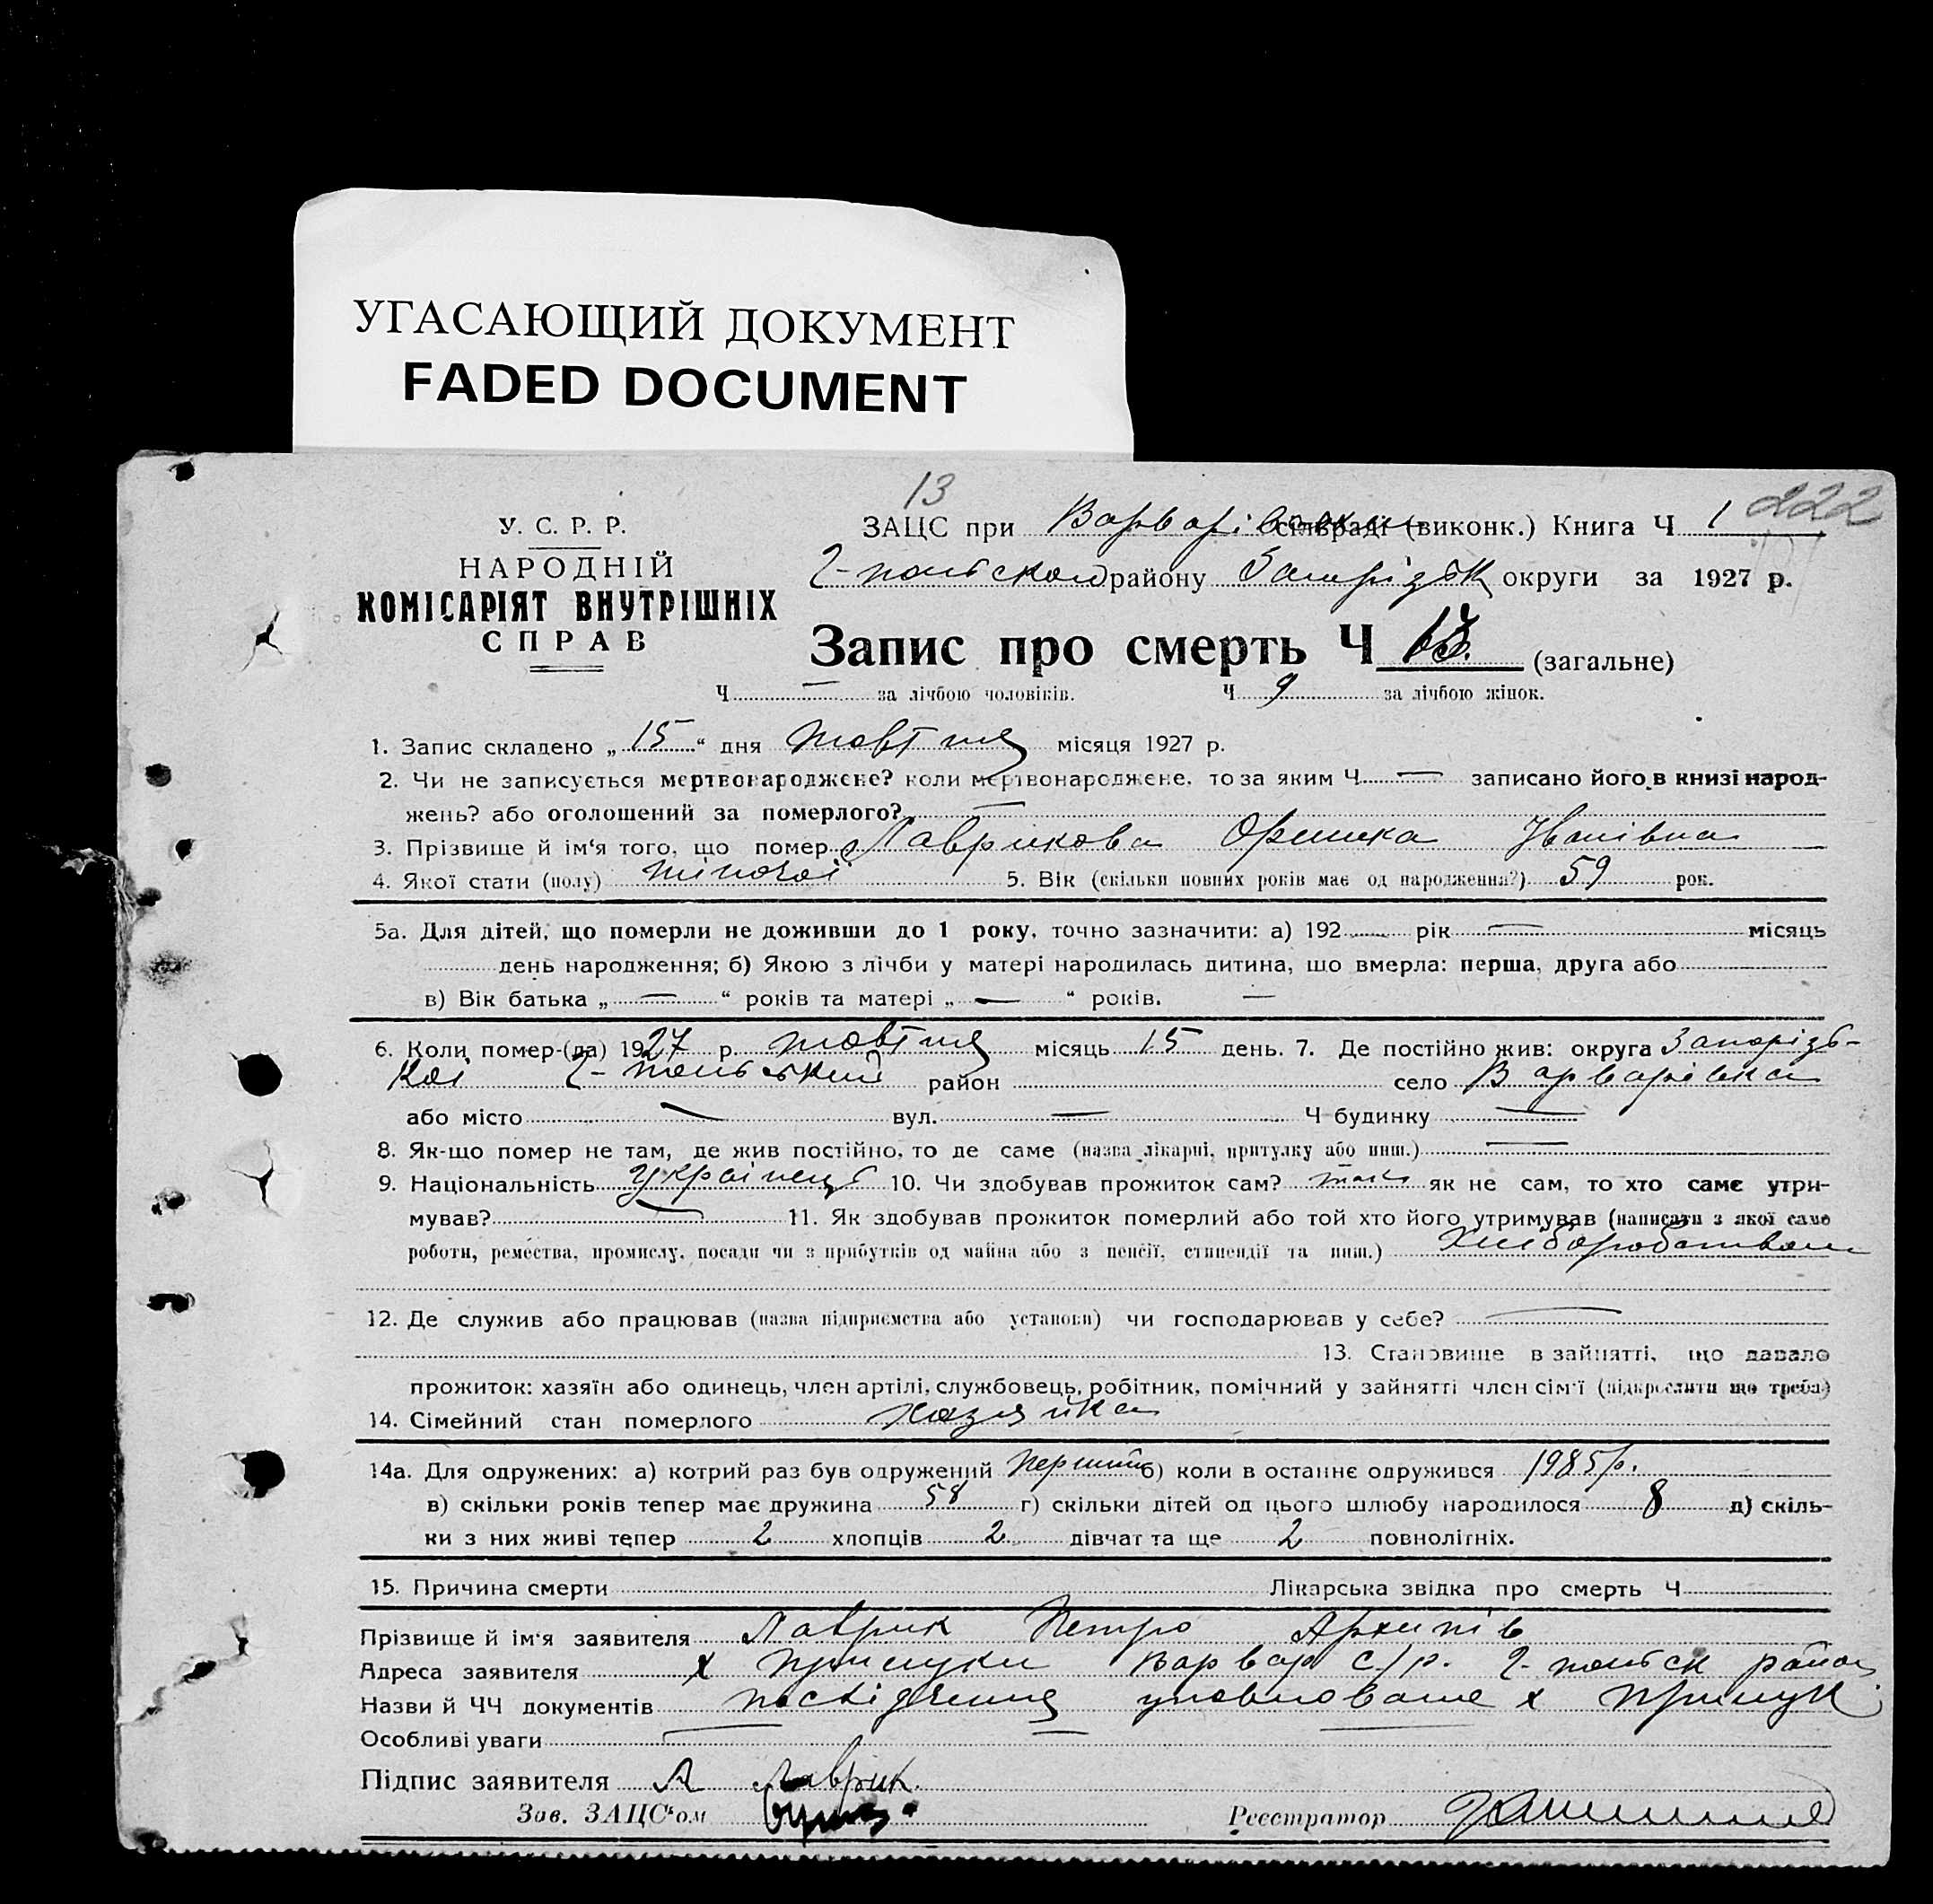 УГАСАЮЩИЙ ДОКУМЕНТ
FADED DOCUMENT
13
222
У. С. Р. Р.
НАРОДНІЙ
КОМІСАРІЯТ ВНУТРІШНІХ
СПРАВ
ЗАЦС при Варварівськ сільраді (виконк.) Книга Ч 1
району Запорізьк округи за 1927 р.
Запис про смерть Ч 13. (загальне)
Ч — за лічбою чоловіків. Ч 9 за лічбою жінок.
1. Запис складено „ 15 “ дня жовтня місяця 1927 р.
2. Чи не записується мертвонароджене? коли мертвонароджене, то за яким Ч — записано його в книзі народ-
жень? або оголошений за померлого? —
3. Прізвище й ім‘я того, що помер Лаврикова Оришка Іванівна
4. Якої стати (полу) жіночої 5. Вік (скільки повних років має од народження?) 59 рок.
5а. Для дітей, що померли не доживши до 1 року, точно зазначити: а) 192 — рік — місяць
день народження; б) Якою з лічби у матері народилась дитина, що вмерла: перша, друга або
в) Вік батька „ — “ років та матері „ — “ років. —
6. Коли помер-(ла) 1927 р. жовтня місяць 15 день. 7. Де постійно жив: округа Запорізь-
кої район село Варварівка
або місто — вул. — Ч будинку —
8. Як-що помер не там, де жив постійно, то де саме (назва лікарні, притулку або инш.) —
9. Національність Українець 10. Чи здобував прожиток сам? так як не сам, то хто саме утри-
мував? — 11. Як здобував прожиток померлий або той хто його утримував (написати з якої саме
роботи, ремества, промислу, посади чи з прибутків од майна або з пенсії, стипендії та инш.) Хліборобством
12. Де служив або працював (назва підприємства або установи) чи господарював у себе? —
13. Становище в зайнятті, що давало
прожиток: хазяїн або одинець, член артілі, службовець, робітник, помічний у зайнятті член сім‘ї (підкреслити що треба)
14. Сімейний стан померлого хазяйка
14а. Для одружених: а) котрий раз був одружений перший б) коли в останнє одружився 1985 р.
в) скільки років тепер має дружина 58 г) скільки дітей од цього шлюбу народилося 8 д) скіль-
ки з них живі тепер 2 хлопців 2 дівчат та ще 2 повнолітніх.
15. Причина смерти Лікарська звідка про смерть Ч
Прізвище й ім‘я заявителя Лаврик Петро Архипів
Адреса заявителя х Прилуки Варвар с/р. район
Назви й ЧЧ документів посвідчення уповноваже х Прилук
Особливі уваги — — —
Підпис заявителя Лаврик.
Зав. ЗАЦС‘ом
Реєстратор